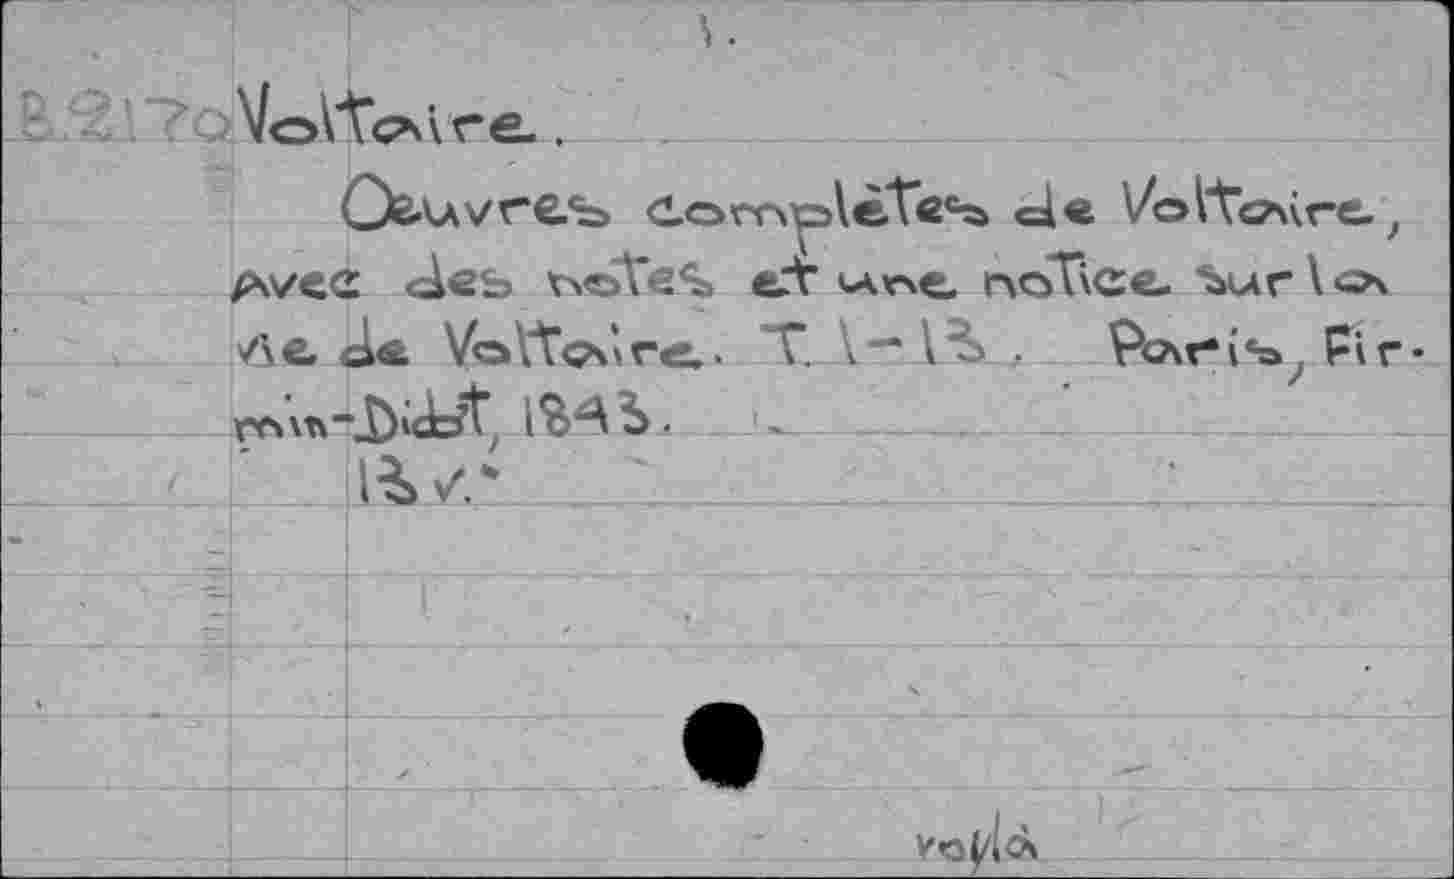 1.
B.2170 Voltaire.
Oeuvres complètes de Voltaire,
avec des notes et une notice sur la
vie de Voltaire. T. 1-13. Paris, Fir-
min-Didot, 1843.
13 v.